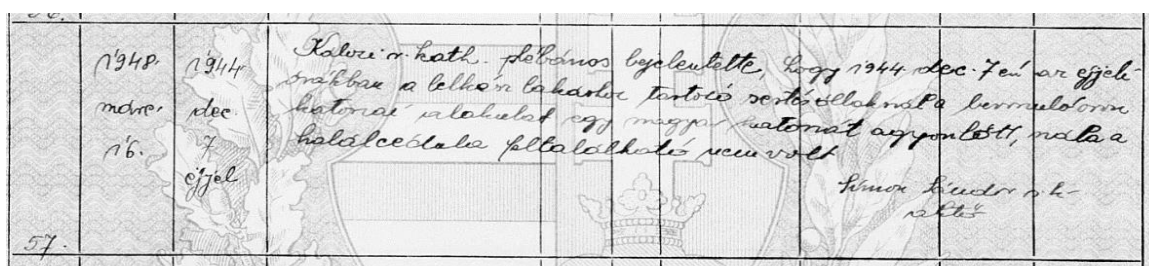 1948. 1944 Kálozi r. kath. plébános bejelentette, hogy 1944 dec. 7 én az éjjeli
márc. dec órákban a lelkészi lakáshoz tartozó sertésállaknál a bevonuló orosz
16. 7 katonai alakulat egy magyar katonát agyonlőtt, nála a
éjjel halálcédula feltalálható nem volt
Simon Sándor s. k.
57.